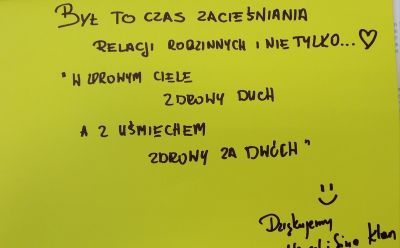 BYŁ TO CZAS ZACIEŚNIANIA
RELACJI RODZINNYCH I NIE TYLKO...♡
"W ZDROWYM CIELE
ZDROWY DUCH
A Z UŚMIECHEM
ZDROWY ZA DWÓCH"
Dziękujemy
Klan